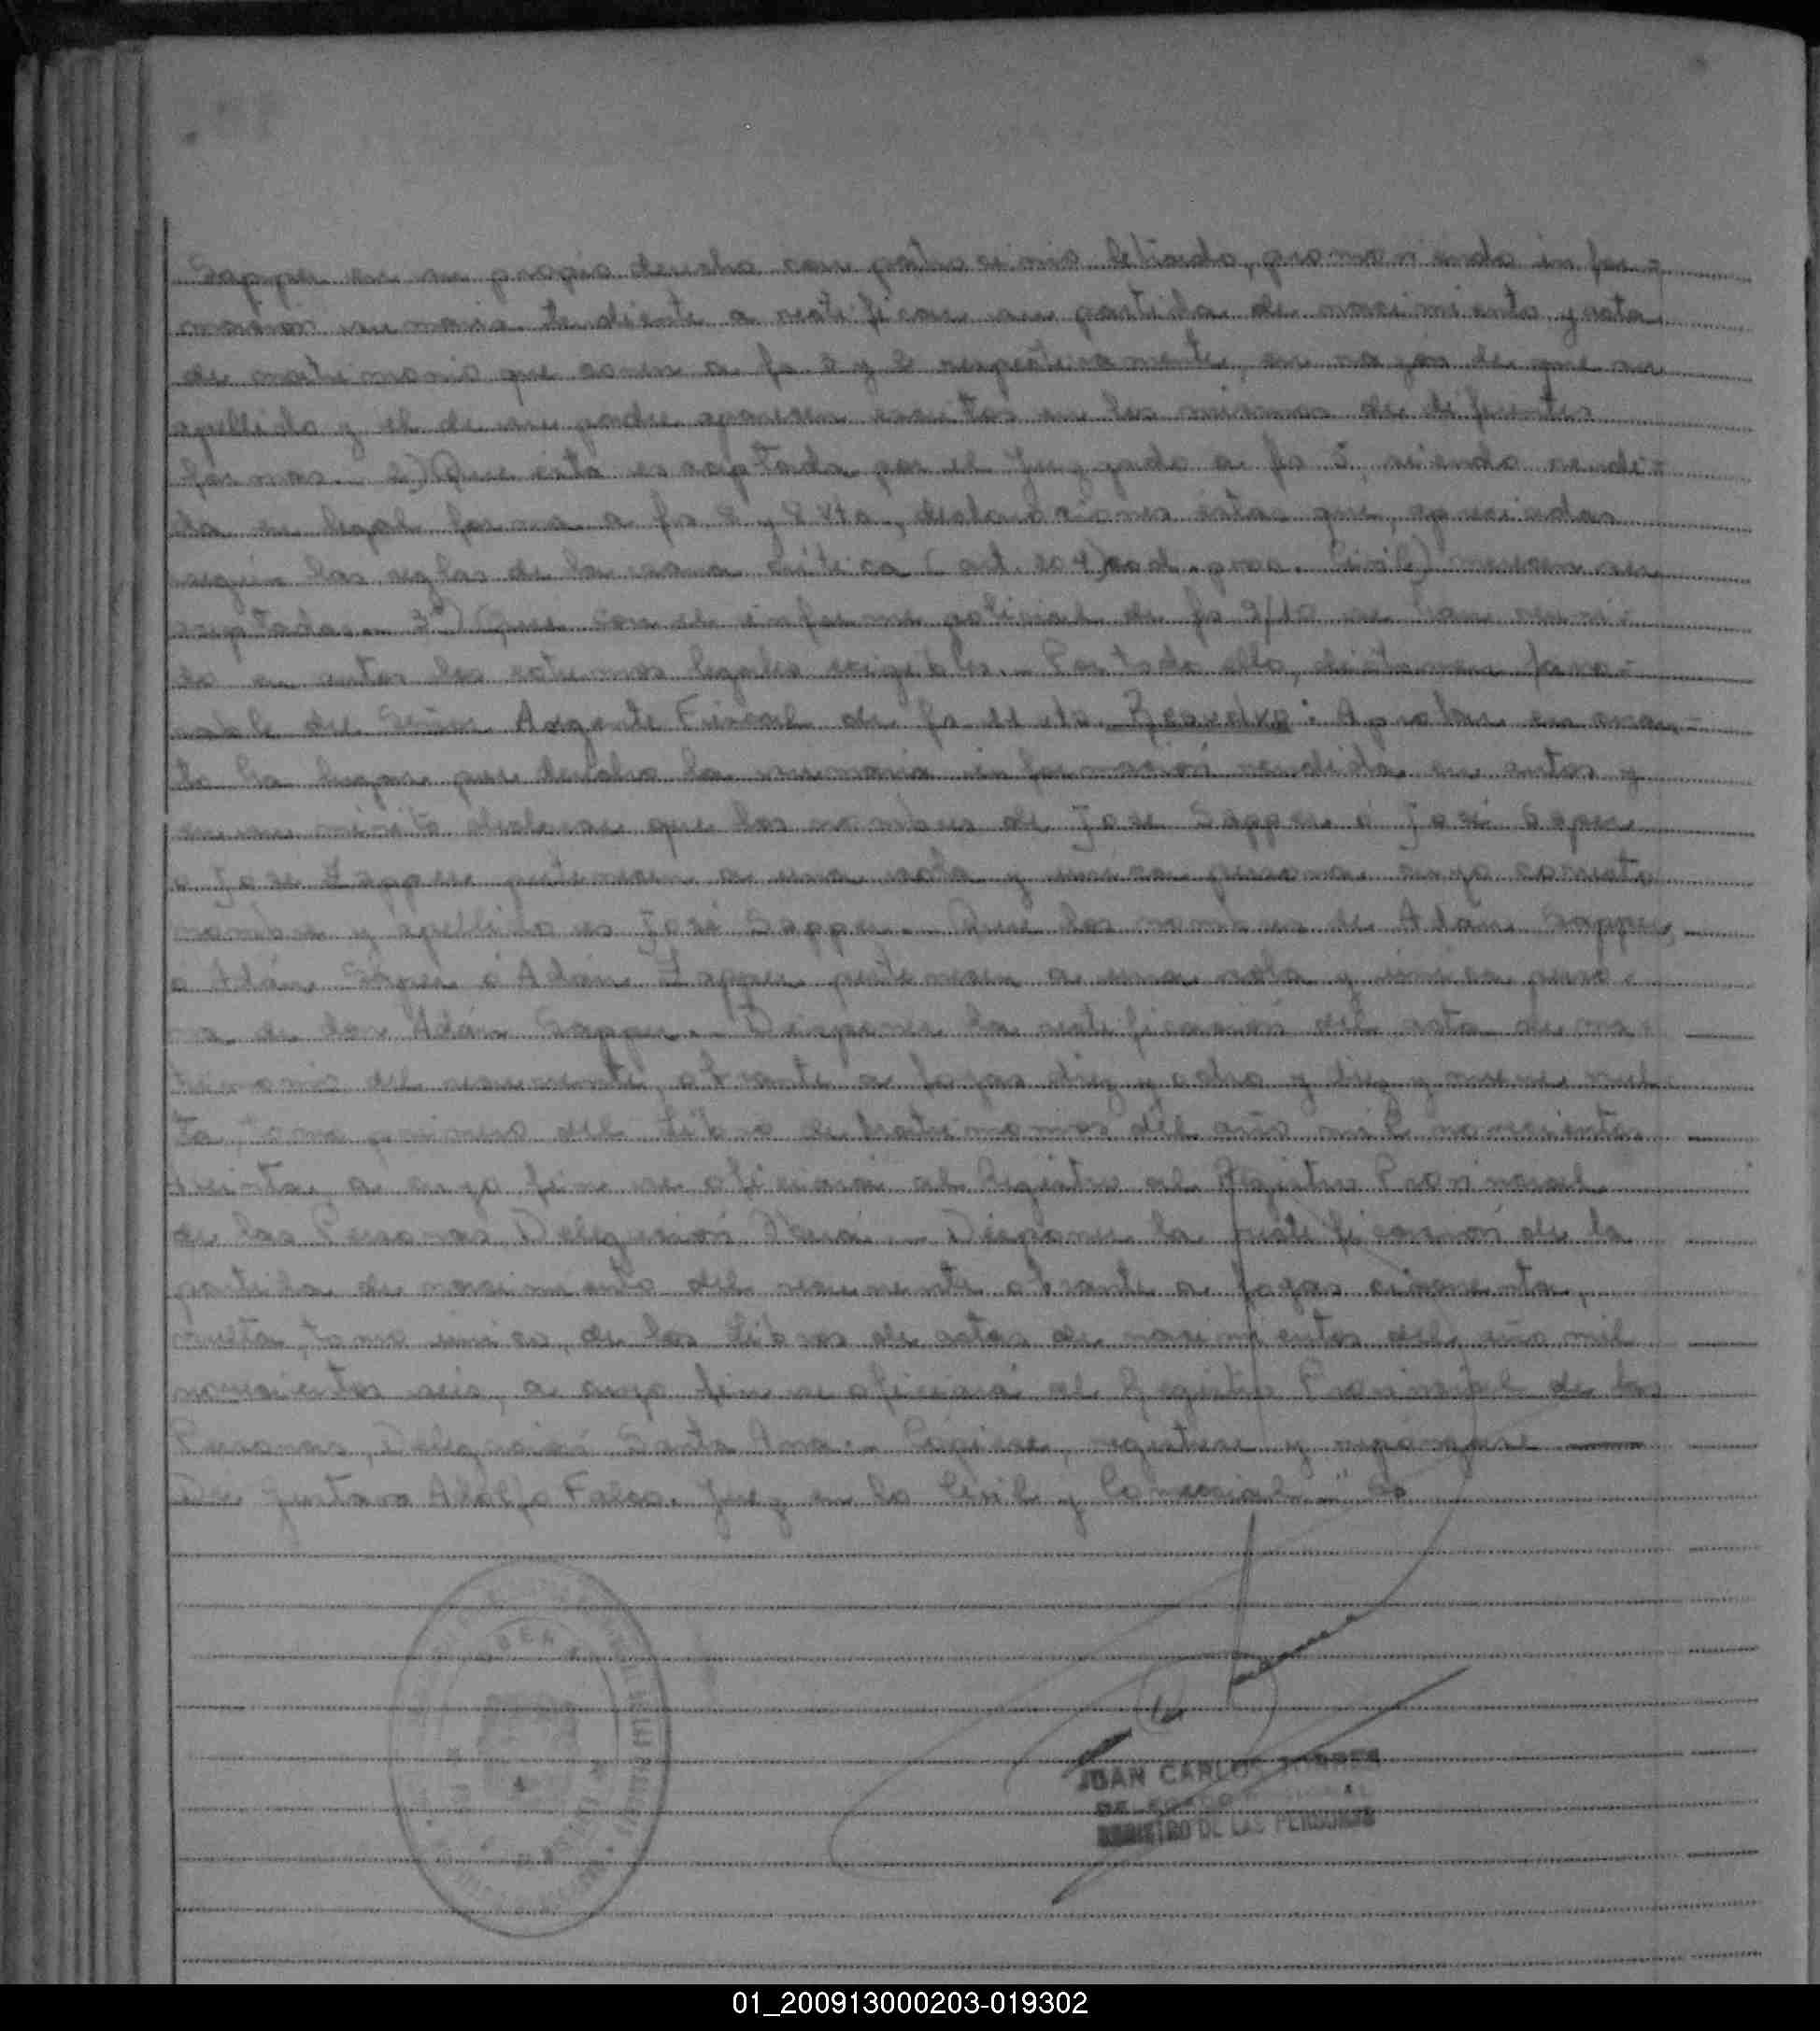 Sapper en su propio derecho con patrocinio letrado, promoviendo infor=
macion sumaria tendiente a rectificar su partida de nacimiento y acta
de matrimonio que corren a fs. y 2 respectivamente, en razon de que su
apellido y el de su padre aparecen escritos en los mismos de diferentes
formas.- 2) Que esta es aceptada por el Juzgado a fs 5, siendo rendi=
da en legal forma a fs 8 y 8 vta, declaraciones estas que, apreciadas
según las reglas de la sana critica (art. 204) cod. proc. Civil) merecen ser
aceptadas.- 3°) Que con el informe policial de fs 9/10 se han
en autos los extremos legales exigibles.- Por todo ello, dictamen favo=
rable del Señor Agente Fiscal de fs 11 vta Resuelvo: Aprobar en cuan=
to ha lugar por derecho la sumaria información rendida en autos y
en su mérito declarar que los nombres de José Sapper ó José Saper
o José Zapper pertenecen a una sola y única persona cuyo correcto
nombre y apellido es José Sapper.- Que los nombres de Adán Sapper,
ó Adán Saper ó Adán Zapper pertenecen a una sola y única perso=
na de don Adán Sapper.- Disponer la rectificación del acta de ma=
trimonio del recurrente, obrante a fojas diez y ocho y diez y nueve vuel=
ta, tomo primero del Libro de Matrimonios del año mil novecientos
treinta, a cuyo fin se oficiará al Registro al Registro Provincial
de las Personas Delegación .- Disponer la rectificación de la
partida de nacimiento del recurrente obrante a fojas cincuenta,
vuelta, tomo único, de los Libros de actas de nacimientos del año mil
novecientos seis, a cuyo fin se oficiará al Registro Provincial de las
Personas, Delegación Santa Ana.- Cópiese, registrese y repóngase
Dr. Gustavo Adolfo Falco. Juez en lo Civil y Comercial.-"
JUAN CARLOS TORRES
REGISTRO DE LAS PERSONAS
01_200913000203-019302